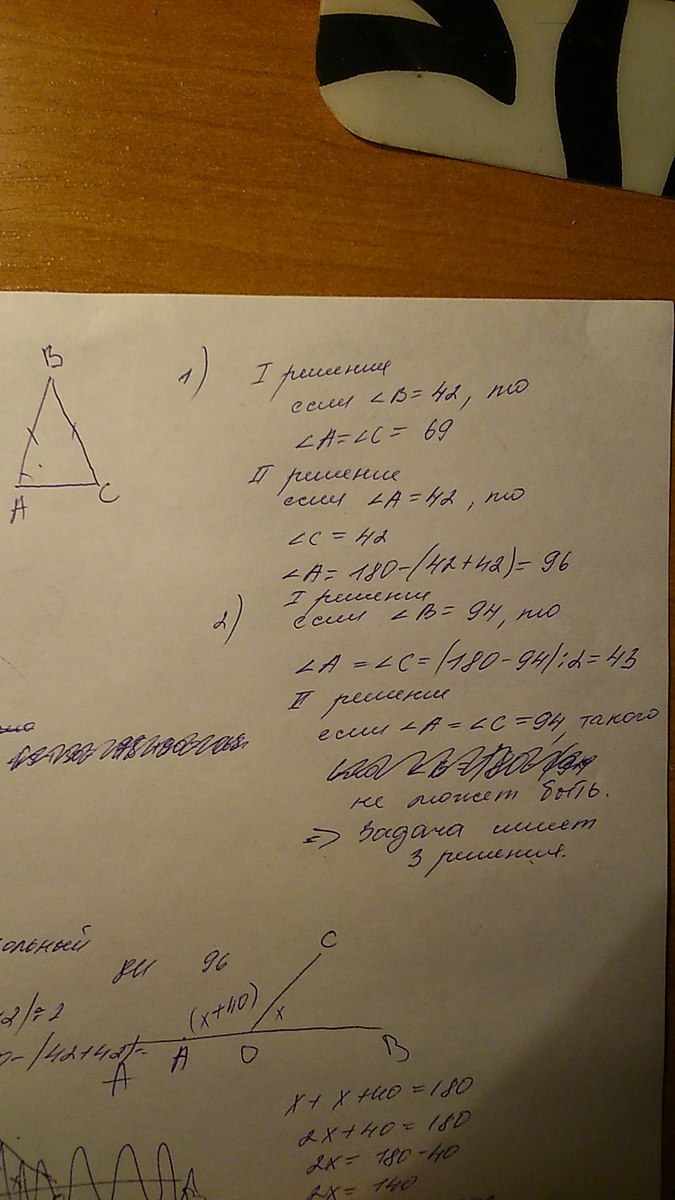 B
A
C
1)
I решение
если ∠B=42, то
∠A=∠C= 69
II решение
если ∠A=42, то
∠C=42
∠A=180-(42+42)=96
2)
I решение
если ∠B=94, то
∠A=∠C=(180-94):2=43
II решение
если ∠A=∠C=94, такого
не может быть.
=> Задача имеет
3 решения.
ольный
96
C
(x+40)
x
A
A
O
B
-(42+42)=
x+x+40=180
2x+40=180
2x=180-40
2x=140